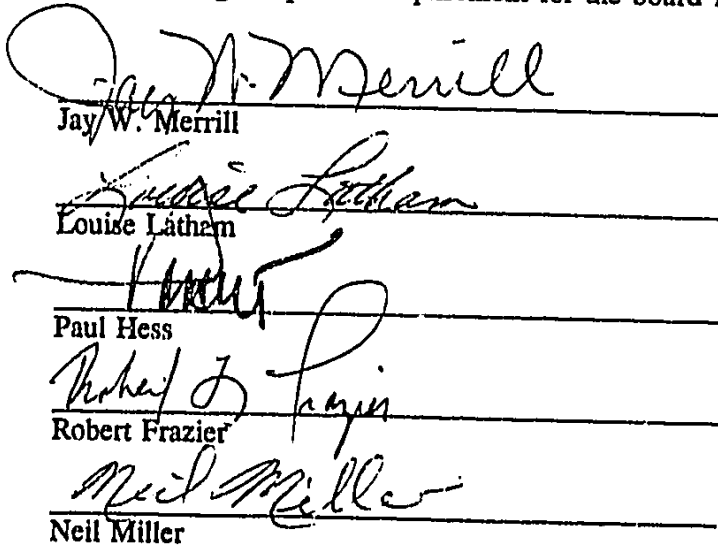 for the board
Jay W. Merrill
Jay W. Merrill
Louise Latham
Louise Latham
Paul Hess
Robert Frazier
Robert Frazier
Neil Miller
Neil Miller